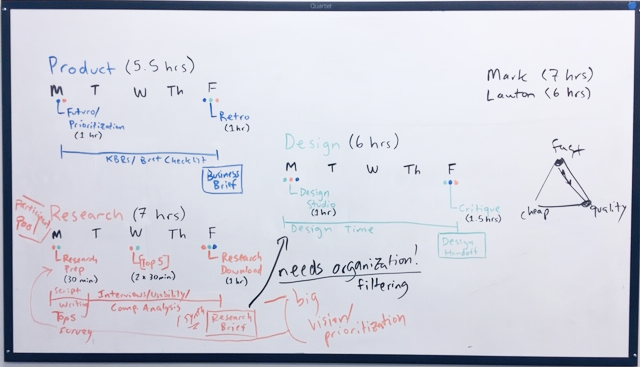 Quartet
Product (5.5 hrs)
M T W Th F
Future/
Prioritization
(1 hr)
Retro
(1 hr)
KBRs/ Brief Checklist
Business
Brief
Mark (7 hrs)
Lauton (6 hrs)
fast
cheap
quality
Design (6 hrs)
M T W Th F
Design
Studio
(1 hr)
Critique
(1.5 hrs)
Design Time
Design
Handoff
Participant
Pool
Research (7 hrs)
M T W Th F
Research
Prep
(30 min)
[Top 5]
(2 x 30 min)
Research
Download
(1 hr)
script
writing
Interviews/Usability/
Comp Analysis
Synth
Research
Brief
Top 5
survey
needs organization!
filtering
big
vision/
prioritization